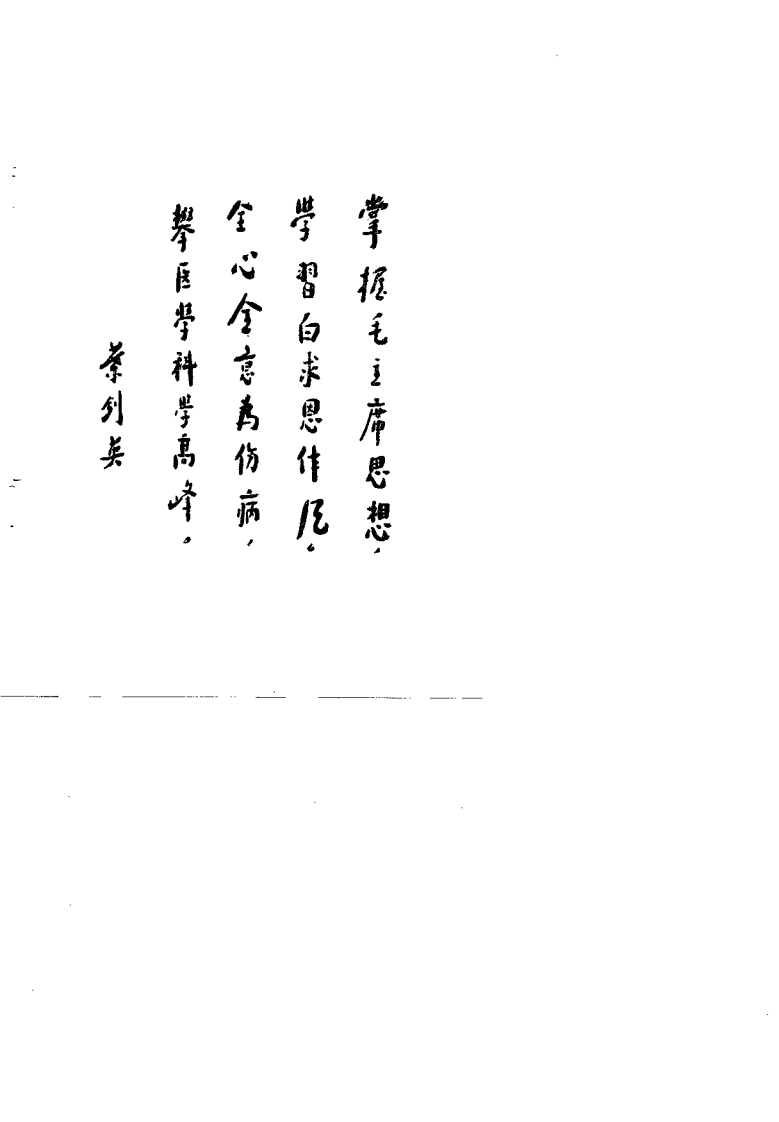 掌握毛主席思想，
學習白求恩作风。
全心全意為伤病，
攀医學科學高峰。
葉剑英